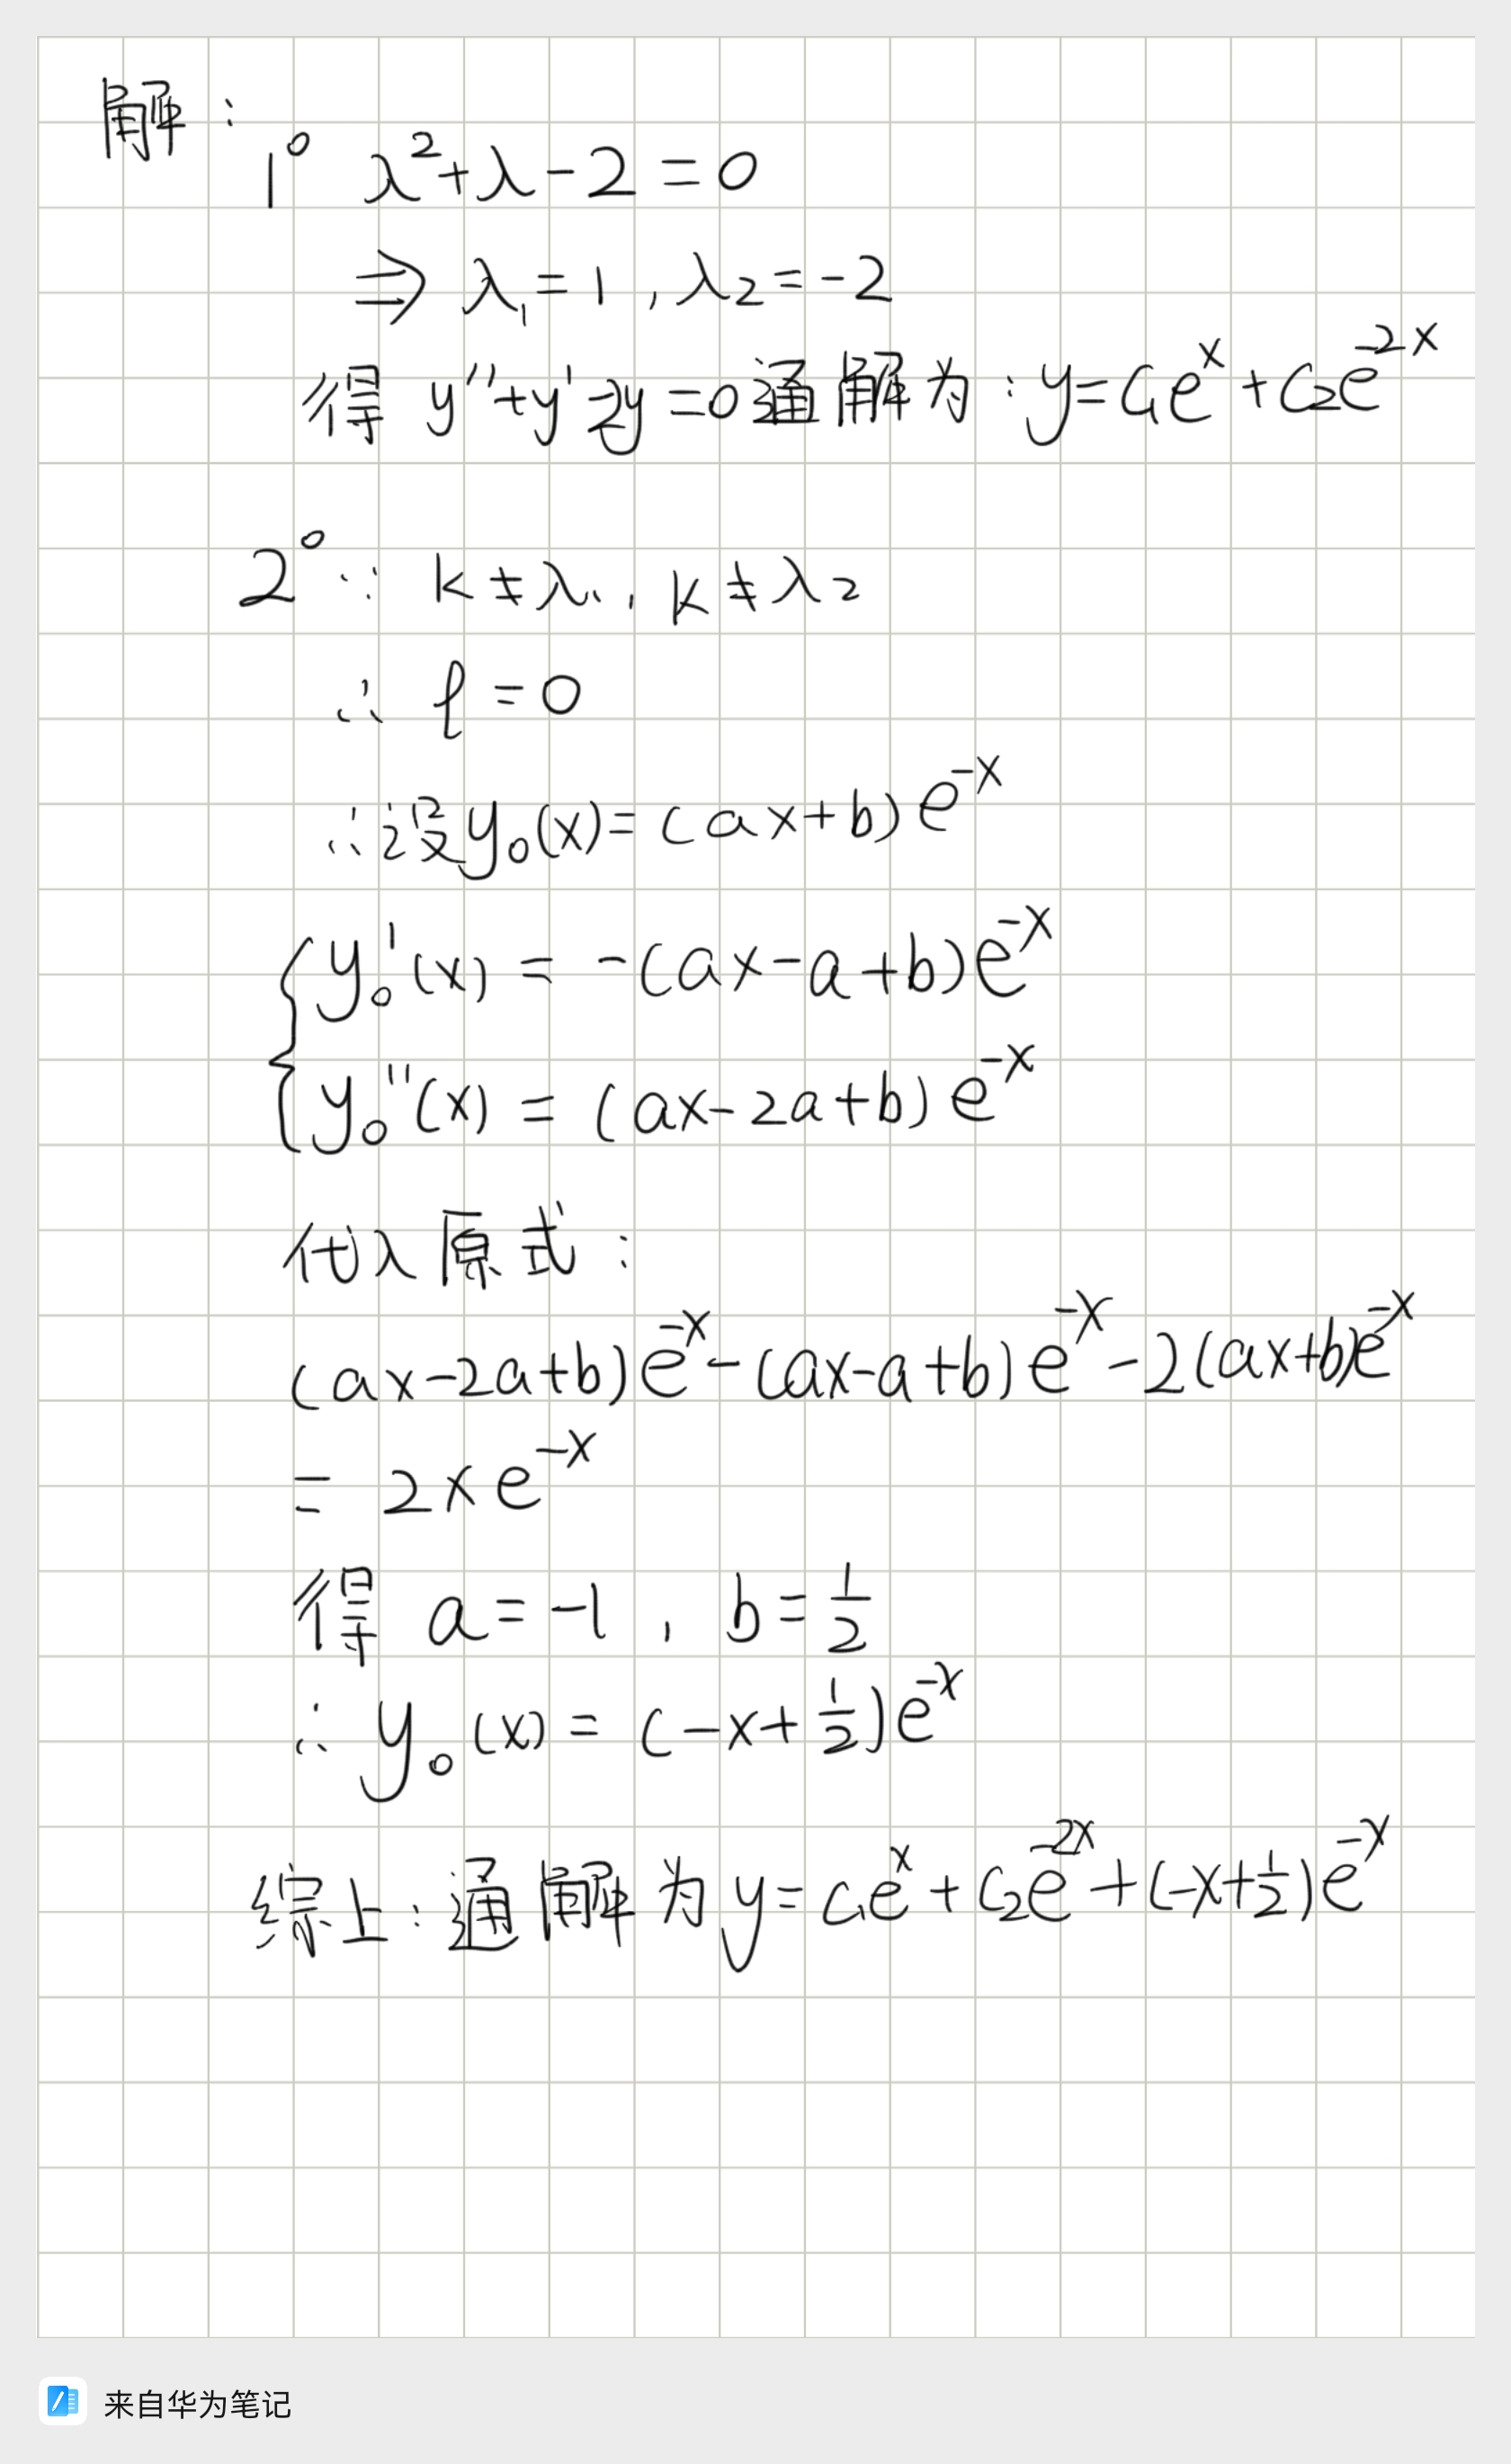 解：
1° λ²+λ-2=0
⇒ λ₁=1，λ₂=-2
得 y''+y'-2y=0通解为：y=C₁eˣ+C₂e⁻²ˣ
2° ∵ k≠λ₁，k≠λ₂
∴ l=0
∴设y₀(x)=(ax+b)e⁻ˣ
y₀'(x)=-(ax-a+b)e⁻ˣ
y₀''(x)=(ax-2a+b)e⁻ˣ
代入原式：
(ax-2a+b)e⁻ˣ-(ax-a+b)e⁻ˣ-2(ax+b)e⁻ˣ
=2xe⁻ˣ
得 a=-1，b=1/2
∴ y₀(x)=(-x+1/2)e⁻ˣ
综上：通解为y=C₁eˣ+C₂e⁻²ˣ+(-x+1/2)e⁻ˣ
来自华为笔记